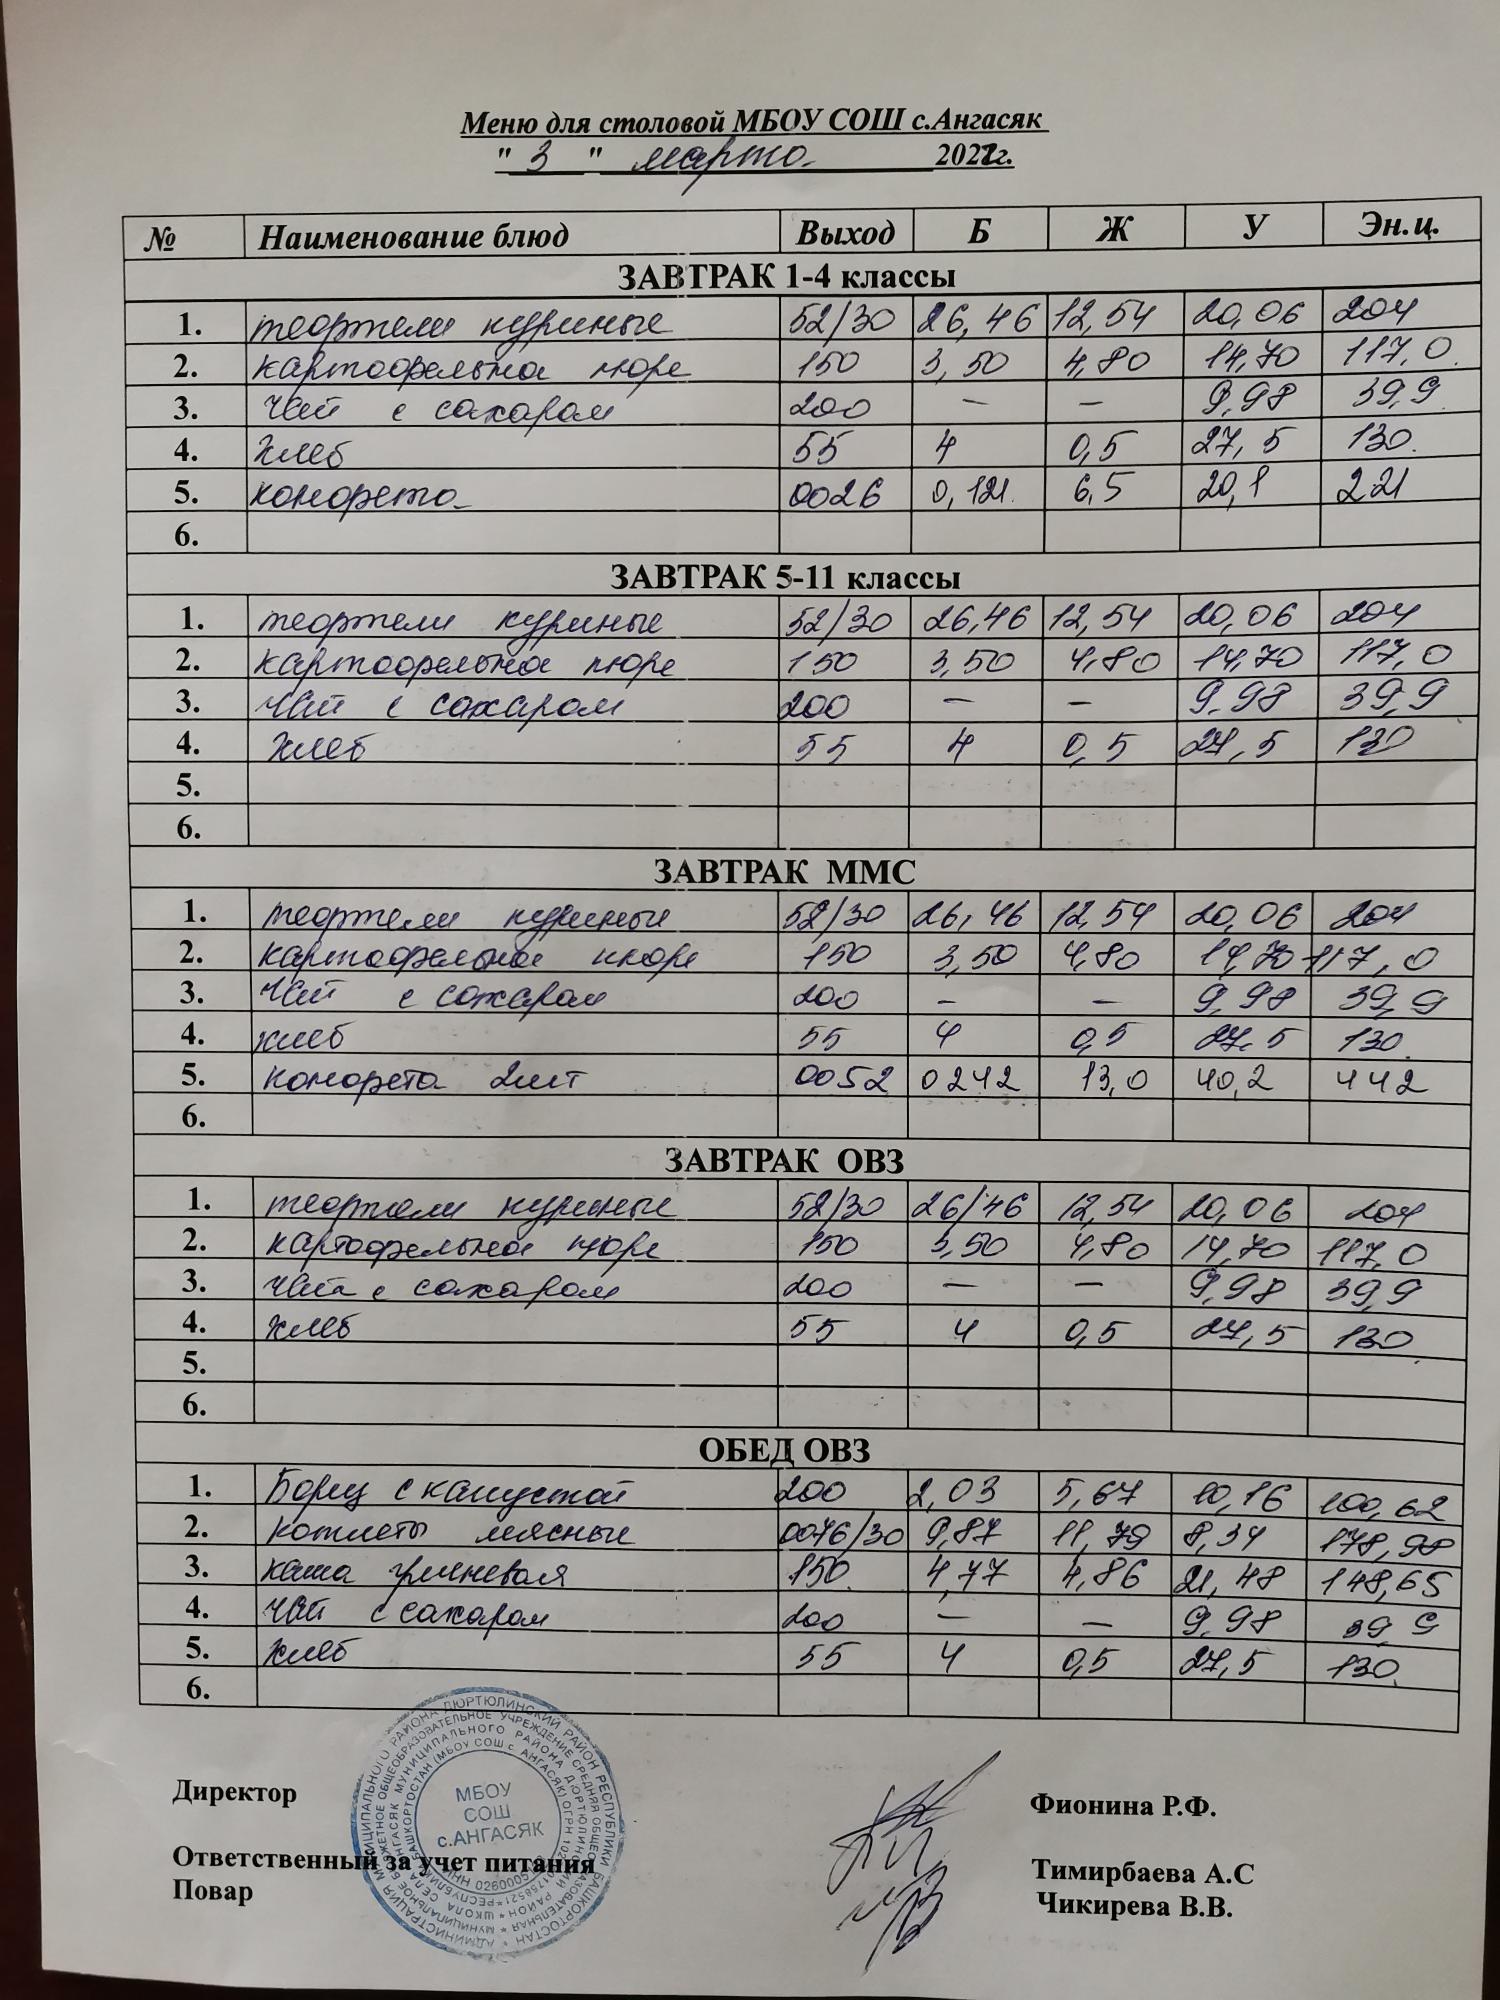 Меню для столовой МБОУ СОШ с.Ангасяк
" 3 " марта 2022г.
№ Наименование блюд Выход Б Ж У Эн.ц.
ЗАВТРАК 1-4 классы
1. тефтели куриные 52/30 26,46 12,54 20,06 204
2. картофельное пюре 150 3,50 4,80 14,70 117,0
3. чай с сахаром 200 – – 9,98 39,9
4. хлеб 55 4 0,5 27,5 130
5. конфета 0026 0,121 6,5 20,1 221
6.
ЗАВТРАК 5-11 классы
1. тефтели куриные 52/30 26,46 12,54 20,06 204
2. картофельное пюре 150 3,50 4,80 14,70 117,0
3. чай с сахаром 200 – – 9,98 39,9
4. хлеб 55 4 0,5 27,5 130
5.
6.
ЗАВТРАК ММС
1. тефтели куриные 52/30 26,46 12,54 20,06 204
2. картофельное пюре 150 3,50 4,80 14,70 117,0
3. чай с сахаром 200 – – 9,98 39,9
4. хлеб 55 4 0,5 27,5 130
5. конфета 2шт 0052 0242 13,0 40,2 442
6.
ЗАВТРАК ОВЗ
1. тефтели куриные 52/30 26/46 12,54 20,06 204
2. картофельное пюре 150 3,50 4,80 14,70 117,0
3. чай с сахаром 200 – – 9,98 39,9
4. хлеб 55 4 0,5 27,5 130
5.
6.
ОБЕД ОВЗ
1. Борщ с капустой 200 2,03 5,67 10,16 100,62
2. котлеты мясные 0076/30 9,87 11,79 8,34 178,98
3. каша гречневая 150 4,77 4,86 21,48 148,65
4. чай с сахаром 200 – – 9,98 39,9
5. хлеб 55 4 0,5 27,5 130
6.
МБОУ
СОШ
с.АНГАСЯК
Директор Фионина Р.Ф.
Ответственный за учет питания Тимирбаева А.С
Повар Чикирева В.В.